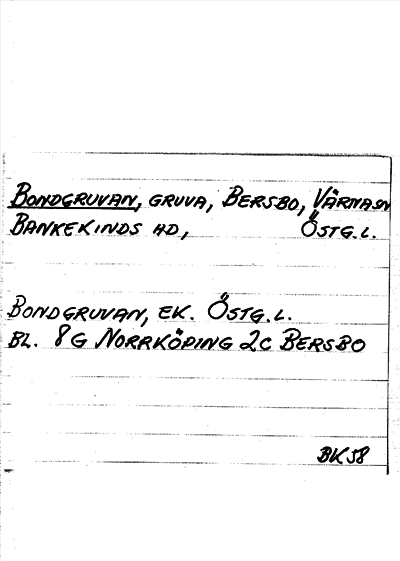 BONDGRUVAN, GRUVA, BERSBO, VÄRNA SN
BANKEKINDS HD, ÖSTG.L.
BONDGRUVAN, EK. ÖSTG.L.
BL. 8G NORRKÖPING 2C BERSBO
BK58